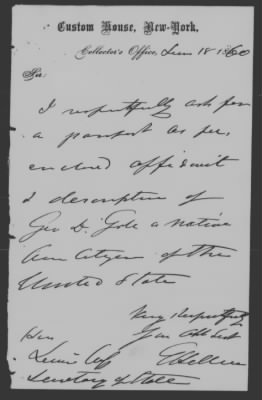 Custom House, New-York,
Collector's Office, June 18 1860
Sir
I respectfully ask for
a passport as per
enclosed affidavit
& description of
Geo D. Gole a native
Am Citizen of the
United State
Very Respectfully
Your Obt Svt
Hon
Lewis Cass
Secretary of State